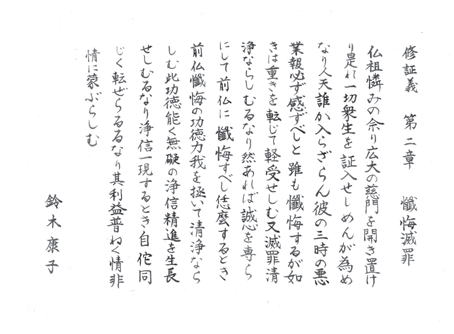 修証義　第二章　懺悔滅罪
仏祖憐みの余り広大の慈門を開き置け
り是れ一切衆生を証入せしめんが為め
なり人天誰か入らざらん彼の三時の悪
業報必ず感ずべしと雖も懺悔するが如
きは重きを転じて軽受せしむ又滅罪清
浄ならしむるなり然あれば誠心を専ら
にして前仏に懺悔すべし恁麼するとき
前仏懺悔の功徳力我を拯いて清浄なら
しむ此功徳能く無礙の浄信精進を生長
せしむるなり浄信一現するとき自佗同
じく転ぜらるるなり其利益普ねく情非
情に蒙ぶらしむ
鈴木康子